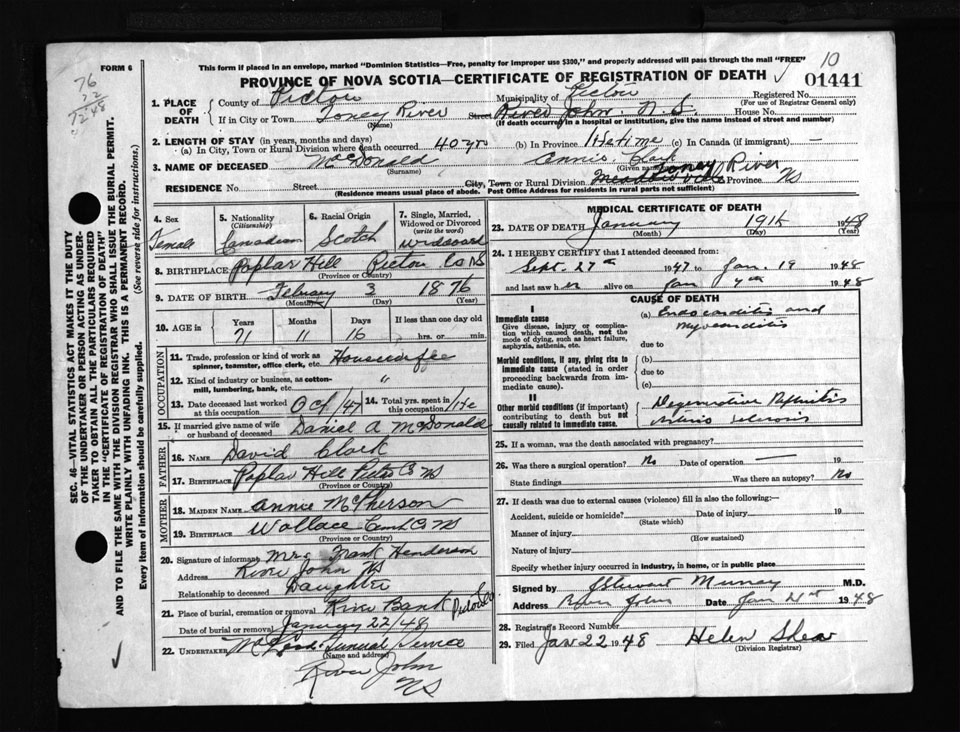 FORM 6
This form if placed in an envelope, marked "Dominion Statistics—Free, penalty for improper use $300," and properly addressed will pass through the mail "FREE"
10
PROVINCE OF NOVA SCOTIA—CERTIFICATE OF REGISTRATION OF DEATH
01441
76
22
1248
SEC. 46—VITAL STATISTICS ACT MAKES IT THE DUTY
OF THE UNDERTAKER OR PERSON ACTING AS UNDER-
TAKER TO OBTAIN ALL THE PARTICULARS REQUIRED
IN THE "CERTIFICATE OF REGISTRATION OF DEATH"
AND TO FILE THE SAME WITH THE DIVISION REGISTRAR WHO SHALL ISSUE THE BURIAL PERMIT.
WRITE PLAINLY WITH UNFADING INK. THIS IS A PERMANENT RECORD.
Every item of information should be carefully supplied. (See reverse side for instructions.)
1. PLACE OF DEATH
County of Pictou Municipality of Pictou Registered No.
(For use of Registrar General only)
If in City or Town Toney River Street River John N.S. House No.
(Name) (If death occurred in a hospital or institution, give the name instead of street and number)
2. LENGTH OF STAY (in years, months and days)
(a) In City, Town or Rural Division where death occurred 40 yrs (b) In Province lifetime (c) In Canada (if immigrant) —
3. NAME OF DECEASED McDonald Annie Clark
(Surname) (Given name)
RESIDENCE No. Street City, Town or Rural Division Meadowville Toney River Province NS
(Residence means usual place of abode. Post Office Address for residents in rural parts not sufficient)
4. Sex
Female
5. Nationality
(Citizenship)
Canadian
6. Racial Origin
Scotch
7. Single, Married,
Widowed or Divorced
(write the word)
widowed
8. BIRTHPLACE Poplar Hill Pictou Co NS
(Province or Country)
9. DATE OF BIRTH February 3 1876
(Month) (Day) (Year)
10. AGE in Years Months Days If less than one day old
71 11 16 hrs. or min.
OCCUPATION
11. Trade, profession or kind of work as Housewife
spinner, teamster, office clerk, etc.
12. Kind of industry or business, as cotton- "
mill, lumbering, bank, etc.
13. Date deceased last worked at this occupation Oct/47
14. Total yrs. spent in this occupation life
15. If married give name of wife or husband of deceased Daniel A McDonald
FATHER
16. NAME David Clark
17. BIRTHPLACE Poplar Hill Pictou Co NS
(Province or Country)
MOTHER
18. MAIDEN NAME Annie McPherson
19. BIRTHPLACE Wallace Cumb Co NS
(Province or Country)
20. Signature of informant Mrs Frank Henderson
Address River John NS
Relationship to deceased Daughter
21. Place of burial, cremation or removal River Bank Pictou Co
Date of burial or removal January 22/48
22. UNDERTAKER Funeral Service
(Name and address)
River John
NS
MEDICAL CERTIFICATE OF DEATH
23. DATE OF DEATH January 19th 1948
(Month) (Day) (Year)
24. I HEREBY CERTIFY that I attended deceased from:
Sept. 27th 1947 to Jan. 19 1948
and last saw her alive on Jan 1948
CAUSE OF DEATH
I
Immediate cause
Give disease, injury or complica-
tion which caused death, not the
mode of dying, such as heart failure,
asphyxia, asthenia, etc.
(a) Endocarditis and
Myocarditis
due to
Morbid conditions, if any, giving rise to
immediate cause (stated in order
proceeding backwards from im-
mediate cause).
(b)
due to
(c)
II
Other morbid conditions (if important)
contributing to death but not
causally related to immediate cause.
Degenerative Nephritis
Arterio sclerosis
25. If a woman, was the death associated with pregnancy?
26. Was there a surgical operation? No Date of operation — 19
State findings Was there an autopsy? No
27. If death was due to external causes (violence) fill in also the following:—
Accident, suicide or homicide? Date of injury 19
(State which)
Manner of injury
(How sustained)
Nature of injury
Specify whether injury occurred in industry, in home, or in public place
Signed by J Stewart Murray M.D.
Address River John Date Jan 21st 1948
28. Registrar's Record Number
29. Filed Jan 22 1948 Helen Shea
(Division Registrar)